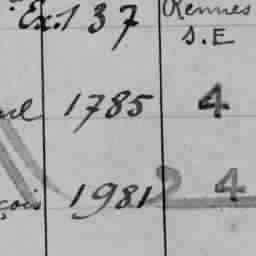 Ex. 137 Rennes
S.E
1785 4
çois 1981 24